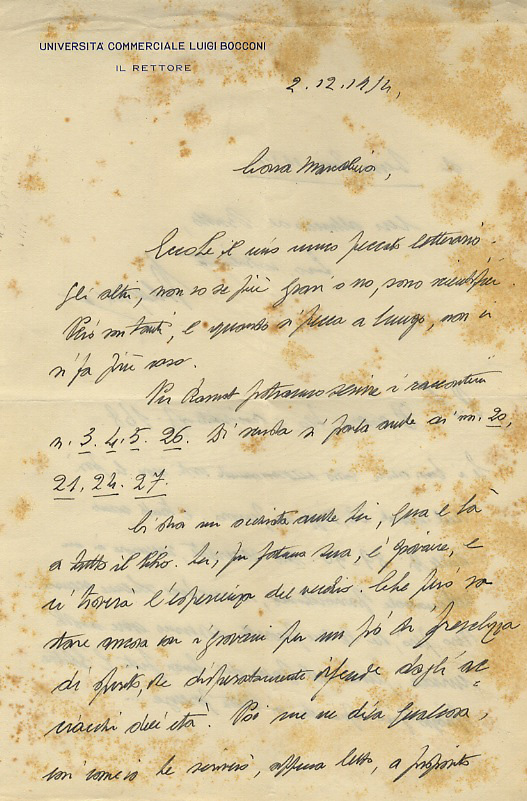 UNIVERSITÀ COMMERCIALE LUIGI BOCCONI
IL RETTORE
2.12.19
Cara
Eccole il mio unico peccato letterario.
Gli altri, non so se più gravi o no, sono scientifici.
Però son tanti, e quando si pecca a lungo, non ci
si fa più caso.
Per potranno servire i raccontini
n. 3. 4. 5. 26. Di si parla anche ai nn. 20,
21, 24. 27.
Ci dia un anche Lei, qua e là
a tutto il libro. Lei, per fortuna sua, è giovane, e
ci troverà l'esperienza del vecchio. Che però sa
stare ancora con i giovani per un pò di freschezza
di spirito, che disperatamente difende dagli ac=
ciacchi dell'età. Poi me ne dica qualcosa,
così come io le scriverò, appena letto, a proposito